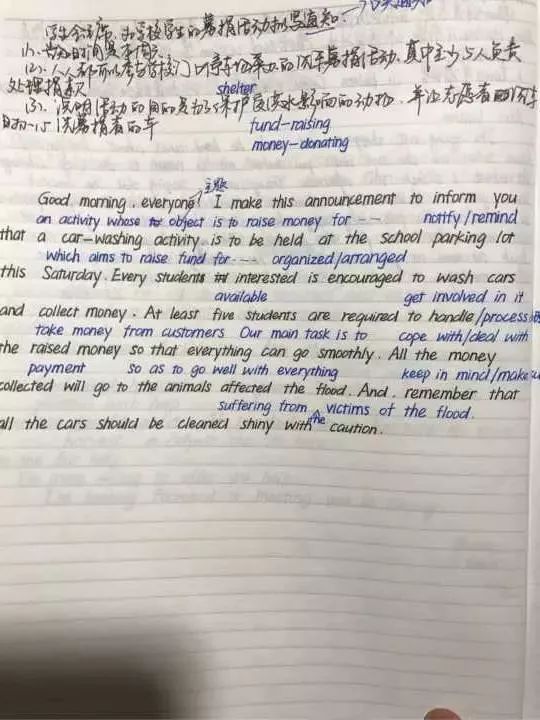 学生会主席,为学校学生的募捐活动拟写通知.
(1). 告知时间及
(2). 人人都可以 学校门口停车场 的洗车募捐活动.其中至少5人负责
处理捐款
shelter
(3). 说明活动的目的是为了保护 洪水影响的动物. 并让志愿者
洗募捐者的车
fund-raising
money-donating
主题
Good morning, everyone! I make this announcement to inform you
an activity whose object is to raise money for ---- notify/remind
that a car-washing activity is to be held at the school parking lot
which aims to raise fund for---- organized/arranged
this Saturday. Every students interested is encouraged to wash cars
available get involved in it
and collect money. At least five students are required to handle/process
take money from customers Our main task is to cope with/deal with
the raised money so that everything can go smoothly. All the money
payment so as to go well with everything keep in mind/make
collected will go to the animals affected the flood. And, remember that
suffering from the victims of the flood.
all the cars should be cleaned shiny with caution.